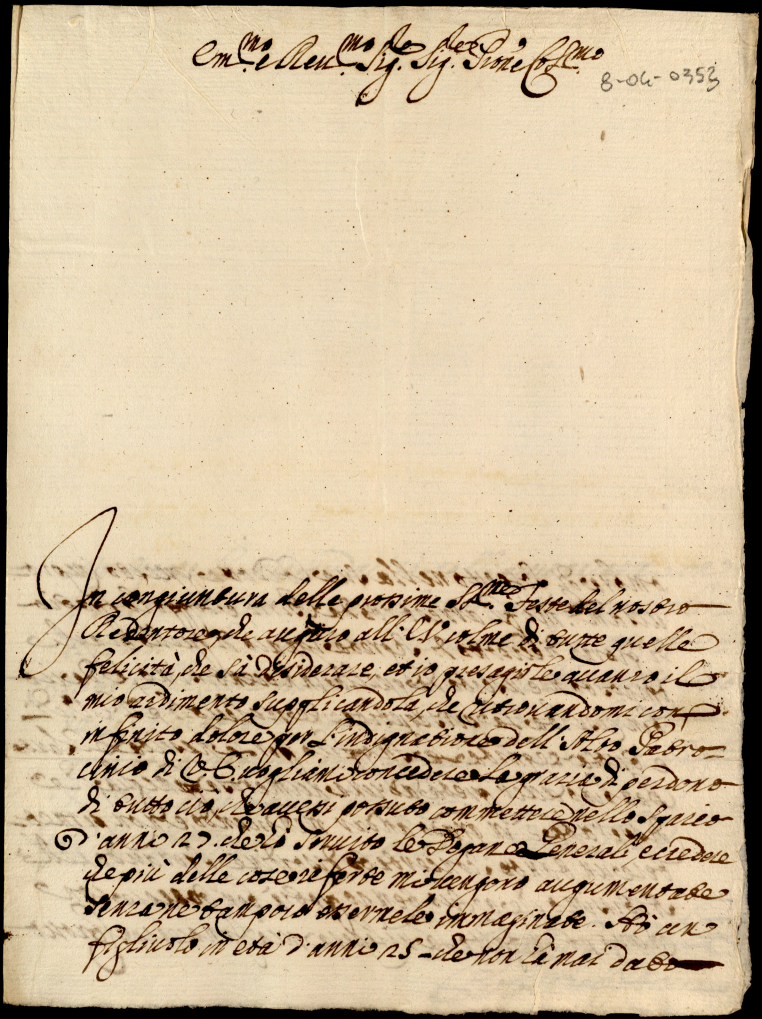 Em.mo e Reu.mo Sig.re Sig.re P'rone Col.mo
8-04-0353
In congiuntura delle prossime S.me Feste del nostro
Redentore, che auguro all' E.V. colme di tutte quelle
felicità, che sà desiderare, et io presagirle auanzo il
mio ardimento supplicandola, che ritrouandomi con
infinito dolore per l'indignatione dell' Alto Patro-
cinio di E.V. vogliami concedere la gratia di perdono
di tutto ciò, che auessi possuto commettere nello spatio
d'anni 27. che hò seruito le Dogane Generali, e credere
che più delle cose referte mi vengono augumentate
senza ne tampoco essernele immaginate. Hò un
figliuolo in età d'anni 25 - che non hà mai dato